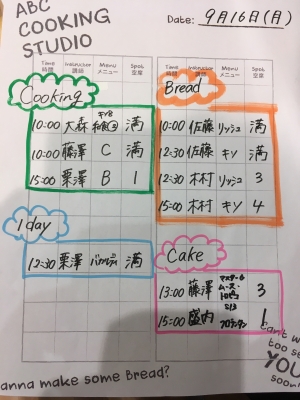 ABC
COOKING
STUDIO
Date: 9月16日(月)
Time Instructor Menu Spot
時間 講師 メニュー 空席
Time Instructor Menu Spot
時間 講師 メニュー 空席
Cooking
10:00 大森 満
10:00 藤澤 C 満
15:00 栗澤 B 1
Bread
10:00 佐藤 リッシュ 満
12:30 佐藤 キソ 満
12:30 木村 リッシュ 3
15:00 木村 キソ 4
1day
12:30 栗澤 満
Cake
13:00 藤澤 3
15:00 盛内 フロランタン 1
Can't w
too se
YOU
soon
anna make some Bread?